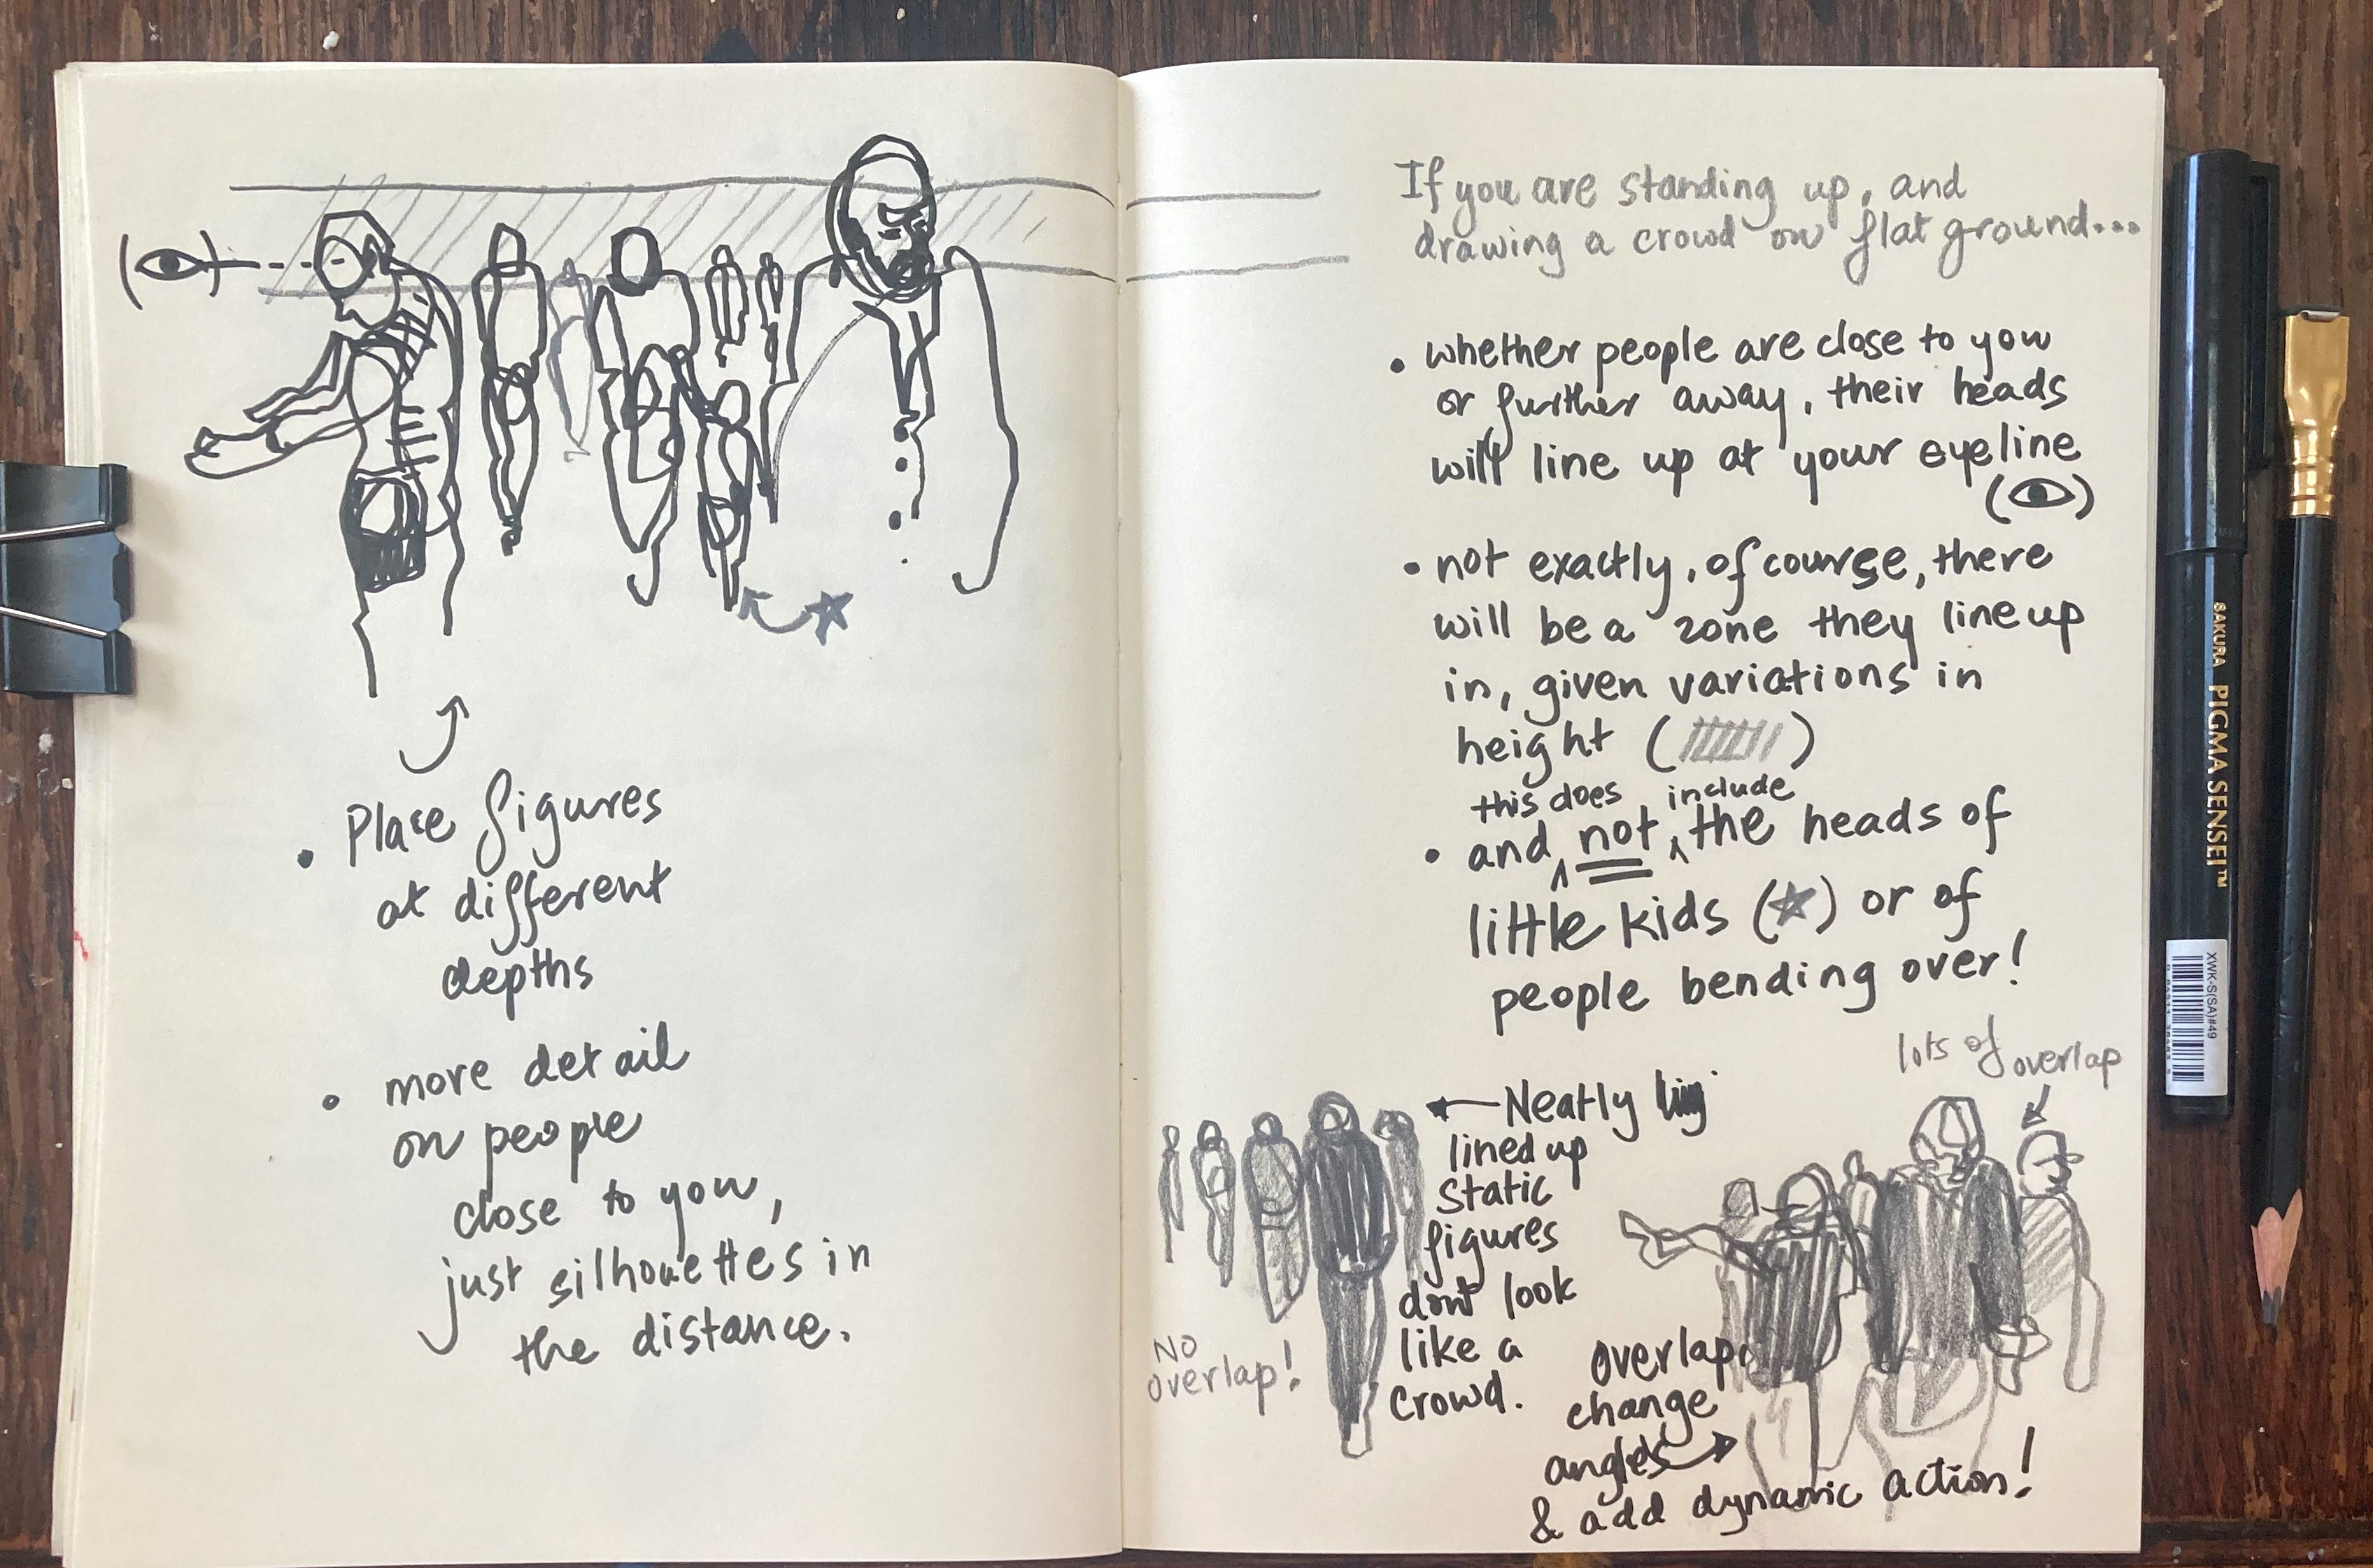 Place figures
at different
depths
more detail
on people
close to you,
just silhouettes in
the distance.
If you are standing up, and
drawing a crowd on flat ground...
whether people are close to you
or further away, their heads
will line up at your eyeline
not exactly, of course, there
will be a zone they line up
in, given variations in
height ( )
this does include
and not the heads of
little kids (☆) or of
people bending over!
lots of
overlap
Neatly
lined up
static
figures
dont look
like a
crowd.
NO
overlap!
overlap,
change
angles
& add dynamic action!
SAKURA PIGMA SENSEI™
XWK-S(SA)#49